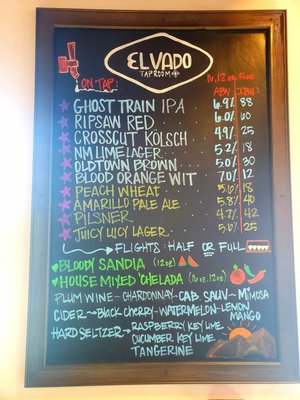 EL VADO
TAPROOM
ON TAP:
16, 12 oz 5 oz
ABV IBU
GHOST TRAIN IPA 6.9% 88
RIPSAW RED 6.0% 60
CROSSCUT KÖLSCH 4.9% 25
NM LIME LAGER 5.2% 18
OLDTOWN BROWN 5.0% 30
BLOOD ORANGE WIT 7.0% 12
PEACH WHEAT 5.6% 18
AMARILLO PALE ALE 5.8% 40
PILSNER 4.7% 42
JUICY LUCY LAGER 5.6% 25
FLIGHTS - HALF OR FULL
BLOODY SANDIA (12oz)
HOUSE MIXED 'CHELADA (16oz, 12oz)
PLUM WINE - CHARDONNAY - CAB SAUV - MIMOSA
CIDER → BLACK CHERRY - WATERMELON - LEMON
MANGO
HARD SELTZER → RASPBERRY KEY LIME
CUCUMBER KEY LIME
TANGERINE